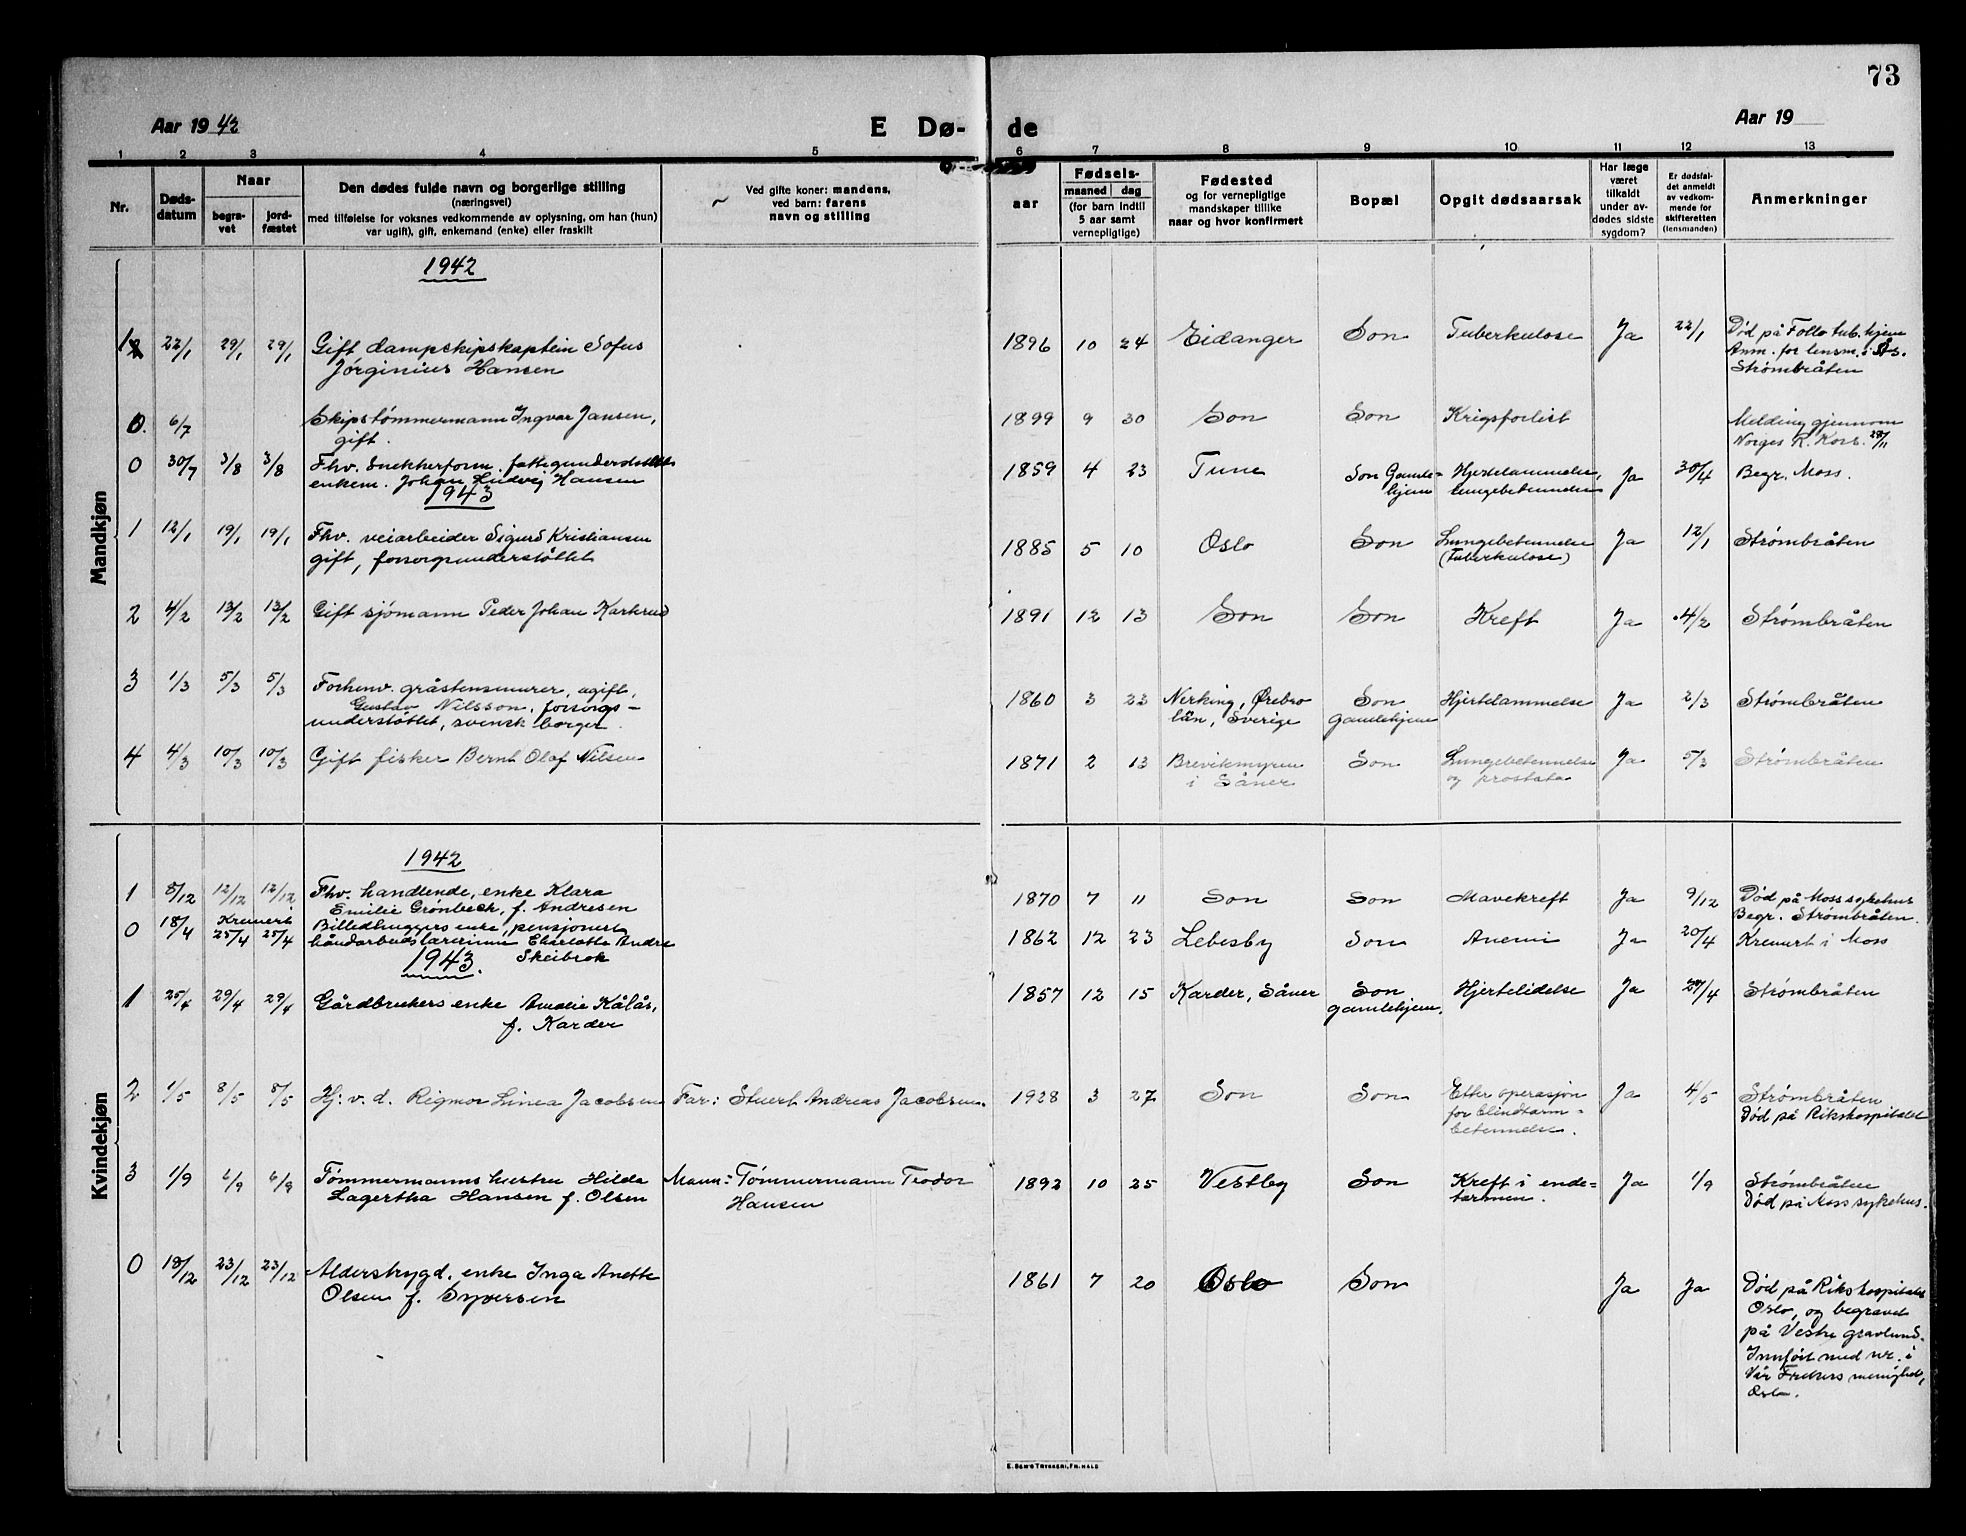 73
Aar 19 42
E Dø-
de
Aar 19
1 2 3 4 5 6 7 8 9 10 11 12 13
Nr.
Døds-
datum
Naar
begra-
vet
jord-
fæstet
Den dødes fulde navn og borgerlige stilling
(næringsvei)
med tilføielse for voksnes vedkommende av oplysning, om han (hun)
var ugift), gift, enkemand (enke) eller fraskilt
Ved gifte koner: mandens,
ved barn: farens
navn og stilling
Fødsels-
aar
maaned dag
(for barn indtil
5 aar samt
vernepligtige)
Fødested
og for vernepligtige
mandskaper tillike
naar og hvor konfirmert
Bopæl
Opgit dødsaarsak
Har læge
været
tilkaldt
under av-
dødes sidste
sygdom?
Er dødsfal-
det anmeldt
av vedkom-
mende for
skifteretten
(lensmanden)
Anmerkninger
Mandkjøn
1942
1 22/1 29/1 29/1 Gift dampskipskaptein Sofus
Jørginius Hansen
1896 10 24 Eidanger Son Tuberkulose Ja 22/1 Død på Follo tub.hjem
Anm. for lensm. i Ås.
Strømbråten
0. 6/7 Skipstømmermann Ingvar Jansen,
gift.
1899 9 30 Son Son Krigsforlist Melding gjennom
Norges R. Kors. 28/11
0 30/7 3/8 3/8 Fhv. snekkerform.
enkem. Johan Ludvig Hansen
1859 4 23 Tune Son Gamle-
hjem
Hjertelammelse,
lungebetennelse
Ja 30/4 Begr. Moss.
1943
1 12/1 19/1 19/1 Fhv. veiarbeider Sigurd Kristiansen
gift, forsorgsunderstøttet
1885 5 10 Oslo Son Lungebetennelse
(Tuberkulose)
Ja 12/1 Strømbråten
2 4/2 13/2 13/2 Gift sjømann Peder Johan Karkrud
1891 12 13 Son Son Kreft Ja 4/2 Strømbråten
3 1/3 5/3 5/3 Forhenv. gråstensmurer, ugift,
Gustav Nilsson, forsorgs-
understøttet, svensk borger.
1860 3 23 Nerking, Ørebro
län, Sverige
Son
gamlehjem
Hjertelammelse Ja 2/3 Strømbråten
4 4/3 10/3 10/3 Gift fisker Bernt Olaf Nilsen
1871 2 13 Brevikmyren
i Såner
Son Lungebetennelse
og prostata
Ja 5/3 Strømbråten
Kvindekjøn
1942
1 8/12 12/12 12/12 Fhv. handlende, enke Klara
Emilie Grønbech, f. Andresen
1870 7 11 Son Son Mavekreft Ja 9/12 Død på Moss sykehus
Begr. Strømbråten.
0 18/4 Kremert
25/4 25/4 Billedhuggers enke, pensjonert
håndarbeidslærerinne Charlotte Andre
Skeibrok
1862 12 23 Lebesby Son Anemi Ja 20/4 Kremert i Moss
1943.
1 25/4 29/4 29/4 Gårdbrukers enke Amalie Kålås,
f. Karder
1857 12 15 Karder, Såner Son
gamlehjem.
Hjertelidelse Ja 27/4 Strømbråten
2 1/5 8/5 8/5 Hj. v. d. Rigmor Linea Jacobsen Far: Stuert Andreas Jacobsen.
1928 3 27 Son Son Etter operasjon
for blindtarm-
betennelse.
Ja 4/5 Strømbråten
Død på Rikshospitalet
3 1/9 6/9 6/9 Tømmermanns hustru Hilda
Lagertha Hansen f. Olsen
Mann: Tømmermann Teodor
Hansen
1892 10 25 Vestby Son Kreft i ende-
tarmen.
Ja 1/9 Strømbråten
Død på Moss sykehus.
0 18/12 23/12 23/12 Alderstrygd. enke Inga Anette
Olsen f. Syversen
1861 7 20 Oslo Son Ja Ja Død på Rikshospitalet
Oslo, og begravet
på Vestre gravlund.
Innført med nr. i
Vår Frelsers menighet,
Oslo.
E. SEM'S TRYKKERI, FR.HALD